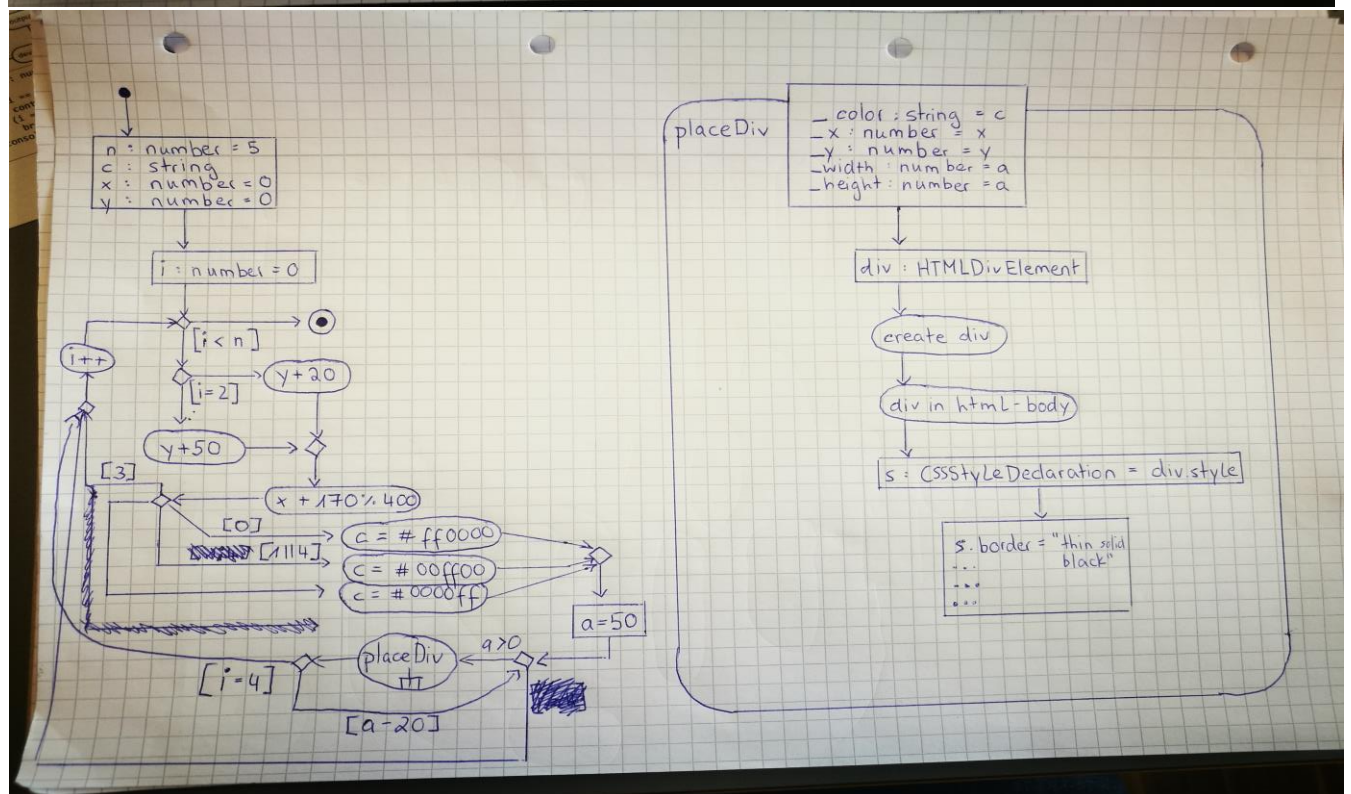 n : number = 5
c : string
x : number = 0
y : number = 0
i : number = 0
[i < n]
i++
[i=2]
y+20
y+50
[3]
x + 170 % 400
[0]
c = # ff0000
[1||4]
c = # 00ff00
c = # 0000ff
a=50
a>0
placeDiv
[i=4]
[a-20]
placeDiv
_ color : string = c
_ x : number = x
_ y : number = y
_ width : number = a
_ height : number = a
div : HTMLDivElement
create div
div in html-body
s : CSSStyleDeclaration = div.style
s.border = "thin solid
black"
...
...
...